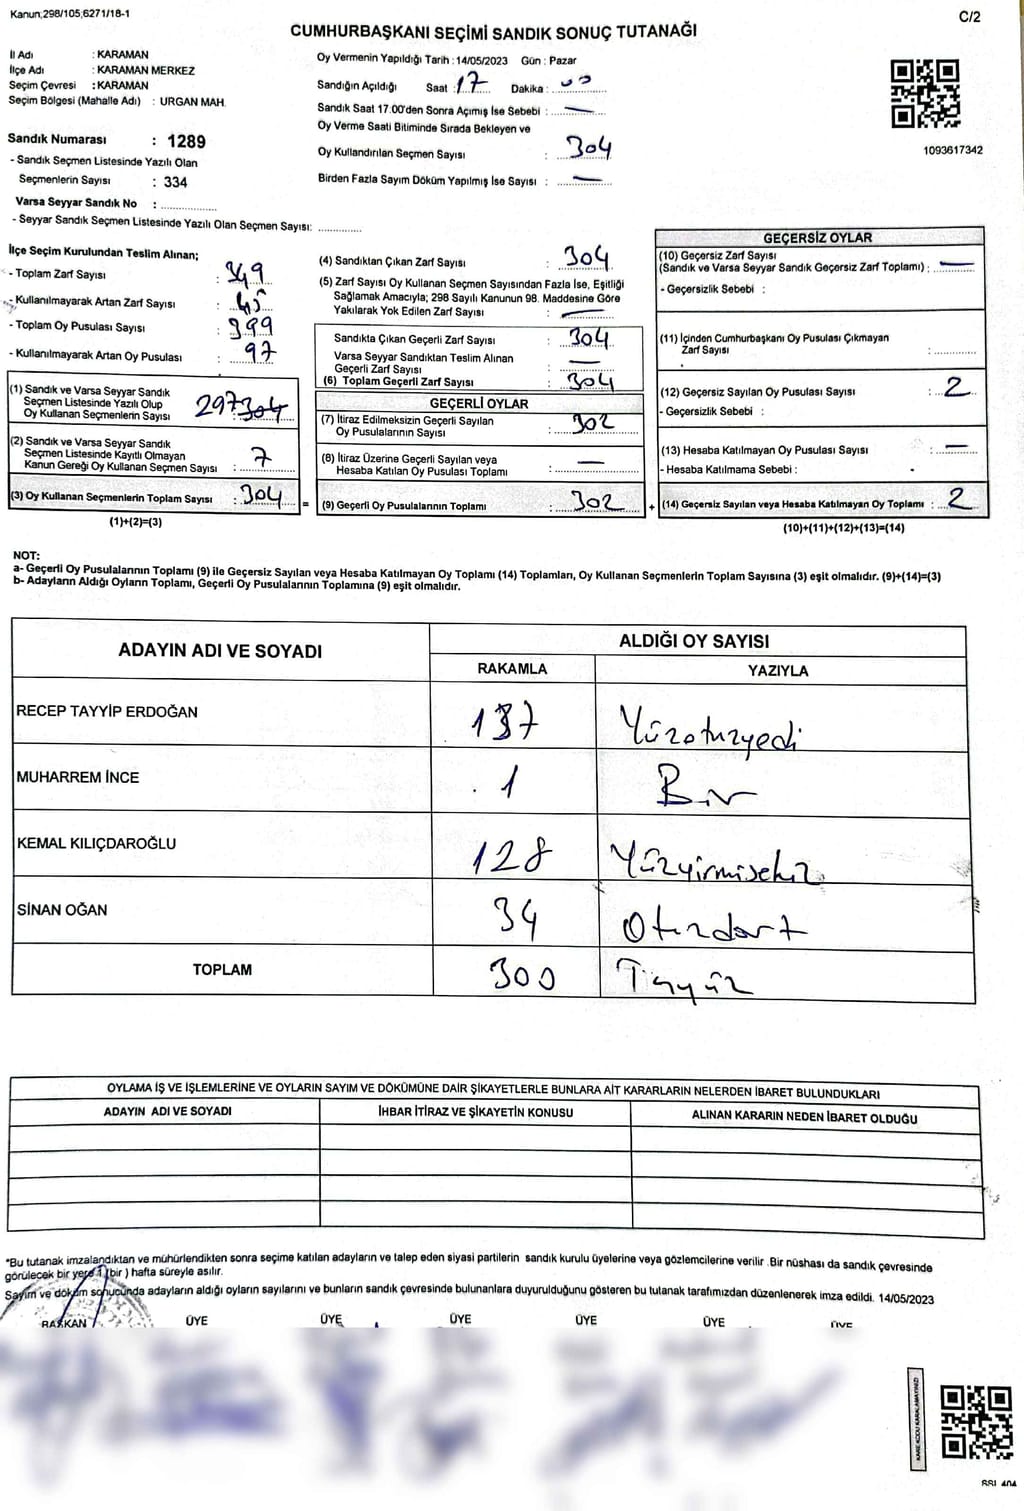 Kanun;298/105;6271/18-1
C/2
CUMHURBAŞKANI SEÇİMİ SANDIK SONUÇ TUTANAĞI
İl Adı : KARAMAN
İlçe Adı : KARAMAN MERKEZ
Seçim Çevresi : KARAMAN
Seçim Bölgesi (Mahalle Adı) : URGAN MAH.
Sandık Numarası : 1289
- Sandık Seçmen Listesinde Yazılı Olan
Seçmenlerin Sayısı : 334
Varsa Seyyar Sandık No : ..............
- Seyyar Sandık Seçmen Listesinde Yazılı Olan Seçmen Sayısı: ............
Oy Vermenin Yapıldığı Tarih : 14/05/2023 Gün : Pazar
Sandığın Açıldığı Saat : 17 Dakika : 00
Sandık Saat 17.00'den Sonra Açımış İse Sebebi : —
Oy Verme Saati Bitiminde Sırada Bekleyen ve
Oy Kullandırılan Seçmen Sayısı : 304
Birden Fazla Sayım Döküm Yapılmış İse Sayısı : —
1093617342
İlçe Seçim Kurulundan Teslim Alınan;
- Toplam Zarf Sayısı : 349
- Kullanılmayarak Artan Zarf Sayısı : 45
- Toplam Oy Pusulası Sayısı : 399
- Kullanılmayarak Artan Oy Pusulası : 97
(1) Sandık ve Varsa Seyyar Sandık
Seçmen Listesinde Yazılı Olup
Oy Kullanan Seçmenlerin Sayısı 297 304
(2) Sandık ve Varsa Seyyar Sandık
Seçmen Listesinde Kayıtlı Olmayan
Kanun Gereği Oy Kullanan Seçmen Sayısı : 7
(3) Oy Kullanan Seçmenlerin Toplam Sayısı : 304
(1)+(2)=(3)
(4) Sandıktan Çıkan Zarf Sayısı : 304
(5) Zarf Sayısı Oy Kullanan Seçmen Sayısından Fazla İse, Eşitliği
Sağlamak Amacıyla; 298 Sayılı Kanunun 98. Maddesine Göre
Yakılarak Yok Edilen Zarf Sayısı : —
Sandıkta Çıkan Geçerli Zarf Sayısı : 304
Varsa Seyyar Sandıktan Teslim Alınan
Geçerli Zarf Sayısı : —
(6) Toplam Geçerli Zarf Sayısı : 304
GEÇERLİ OYLAR
(7) İtiraz Edilmeksizin Geçerli Sayılan
Oy Pusulalarının Sayısı : 302
(8) İtiraz Üzerine Geçerli Sayılan veya
Hesaba Katılan Oy Pusulası Toplamı : —
= (9) Geçerli Oy Pusulalarının Toplamı : 302
GEÇERSİZ OYLAR
(10) Geçersiz Zarf Sayısı
(Sandık ve Varsa Seyyar Sandık Geçersiz Zarf Toplamı) : —
- Geçersizlik Sebebi :
(11) İçinden Cumhurbaşkanı Oy Pusulası Çıkmayan
Zarf Sayısı : ............
(12) Geçersiz Sayılan Oy Pusulası Sayısı : 2
- Geçersizlik Sebebi :
(13) Hesaba Katılmayan Oy Pusulası Sayısı : —
- Hesaba Katılmama Sebebi :
+ (14) Geçersiz Sayılan veya Hesaba Katılmayan Oy Toplamı : 2
(10)+(11)+(12)+(13)=(14)
NOT:
a- Geçerli Oy Pusulalarının Toplamı (9) ile Geçersiz Sayılan veya Hesaba Katılmayan Oy Toplamı (14) Toplamları, Oy Kullanan Seçmenlerin Toplam Sayısına (3) eşit olmalıdır. (9)+(14)=(3)
b- Adayların Aldığı Oyların Toplamı, Geçerli Oy Pusulalarının Toplamına (9) eşit olmalıdır.
ADAYIN ADI VE SOYADI ALDIĞI OY SAYISI
RAKAMLA YAZIYLA
RECEP TAYYİP ERDOĞAN 137 Yüzotuzyedi
MUHARREM İNCE 1 Bir
KEMAL KILIÇDAROĞLU 128 Yüzyirmisekiz
SİNAN OĞAN 34 Otuzdört
TOPLAM 300
OYLAMA İŞ VE İŞLEMLERİNE VE OYLARIN SAYIM VE DÖKÜMÜNE DAİR ŞİKAYETLERLE BUNLARA AİT KARARLARIN NELERDEN İBARET BULUNDUKLARI
ADAYIN ADI VE SOYADI İHBAR İTİRAZ VE ŞİKAYETİN KONUSU ALINAN KARARIN NEDEN İBARET OLDUĞU
*Bu tutanak imzalandıktan ve mühürlendikten sonra seçime katılan adayların ve talep eden siyasi partilerin sandık kurulu üyelerine veya gözlemcilerine verilir .Bir nüshası da sandık çevresinde
görülecek bir yere 1 (bir ) hafta süreyle asılır.
Sayım ve döküm sonucunda adayların aldığı oyların sayılarını ve bunların sandık çevresinde bulunanlara duyurulduğunu gösteren bu tutanak tarafımızdan düzenlenerek imza edildi. 14/05/2023
BAŞKAN ÜYE ÜYE ÜYE ÜYE ÜYE ÜYE
KARE KODU KARALAMAYINIZ!